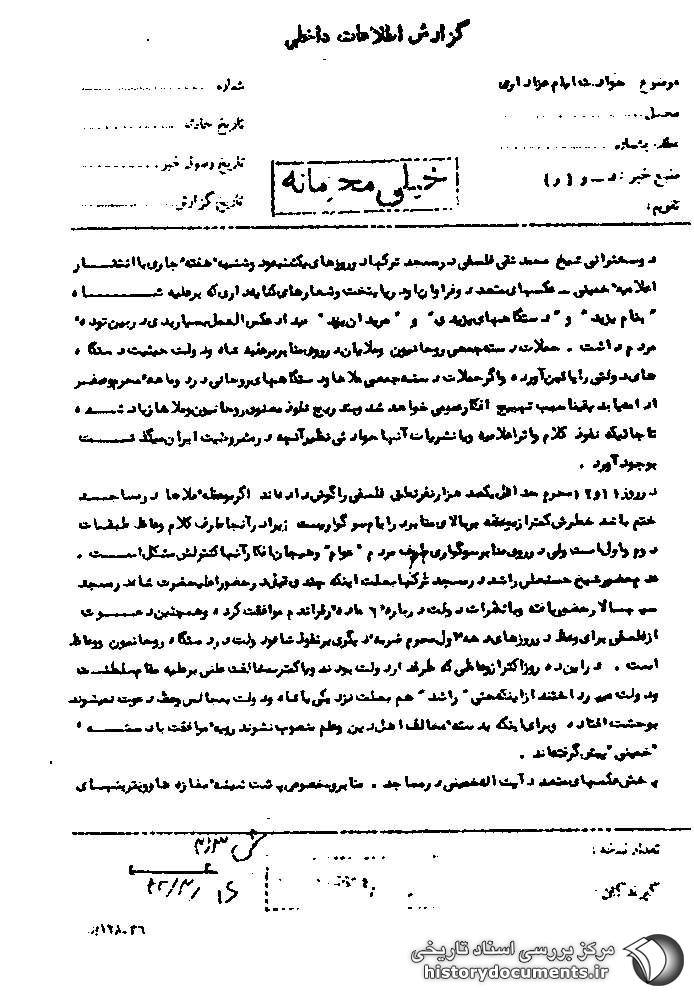 گزارش اطلاعات داخلی
موضوع حوادث ایام عزاداری
شماره
محل
تاریخ حادثه
تاریخ وصول خبر
منبع خبر :
خیلی محرمانه
تاریخ گزارش
تقویم :
دو سخنرانی شیخ محمد تقی فلسفی در مسجد ترکها در روزهای یکشنبه و دوشنبه هفته جاری با انتشار
اعلامیه خمینی - عکسهای متعدد و فراوان او در پایتخت و شعارهای کنایه داری که بر علیه شاه
" بنام یزید " و " دستگاههای یزیدی " و " مریدان یزید " میداد عکس العمل بسیار بدی در بین توده
مردم داشت . حملات دسته جمعی روحانیون و ملایان در روی منابر بر علیه شاه و دولت حیثیت دستگاه
های دولتی را پائین آورده و اگر حملات دسته جمعی ملاها و دستگاههای روحانی در دو ماهه محرم و صفر
ادامه یابد یقینا سبب تهییج افکار عمومی خواهد شد و بتدریج نفوذ معنوی روحانیون و ملاها زیاد شده
تا جائیکه نفوذ کلام و اثر اعلامیه و یا نشریات آنها حوادثی نظیر آنچه در مشروطیت ایران میگذشت
بوجود آورد .
در روز ۱۱ و ۱۲ محرم حداقل یکصد هزار نفر نطق فلسفی را گوش داده اند اگر موعظه ملاها در مساجد
ختم باشد خطرش کمتر از موعظه بر بالای منابر در ایام سوگواریست زیرا در آنجا طرف کلام وعاظ طبقات
دوم و اول است ولی در روی منابر سوگواری طرف مردم " عوام " و هیجان افکار آنها کنترلش مشکل است .
عدم حضور شیخ حسنعلی راشد در مسجد ترکها بعلت اینکه چندی قبل در حضور اعلیحضرت شاه در مسجد
سپهسالار حضور یافته و با نظرات دولت درباره ۶ ماده رفراندم موافقت کرده و همچنین دعوت
از فلسفی برای وعظ در روزهای دهه اول محرم ضربه دیگری بر نفوذ شاه و دولت در دستگاه روحانیون و وعاظ
است . در این ده روز اکثر از وعاظی که طرفدار دولت بودند و یا کمتر مخالفت علنی بر علیه مقام سلطنت
و دولت میپرداختند از اینکه حتی " راشد " هم بعلت نزدیکی با شاه و دولت بمجالس وعظ دعوت نمیشوند
بوحشت افتاده و برای اینکه بدسته مخالف اهل دین و علم منصوب نشوند رویه موافقت با دسته
" خمینی " پیش گرفته اند .
پخش عکسهای متعدد آیت اله خمینی در مساجد . منابر بخصوص پشت شیشه مغازه ها و ویترینهای
تعداد نسخه :
گیرندگان
۳/۱۶
مرکز بررسی اسناد تاریخی
historydocuments.ir